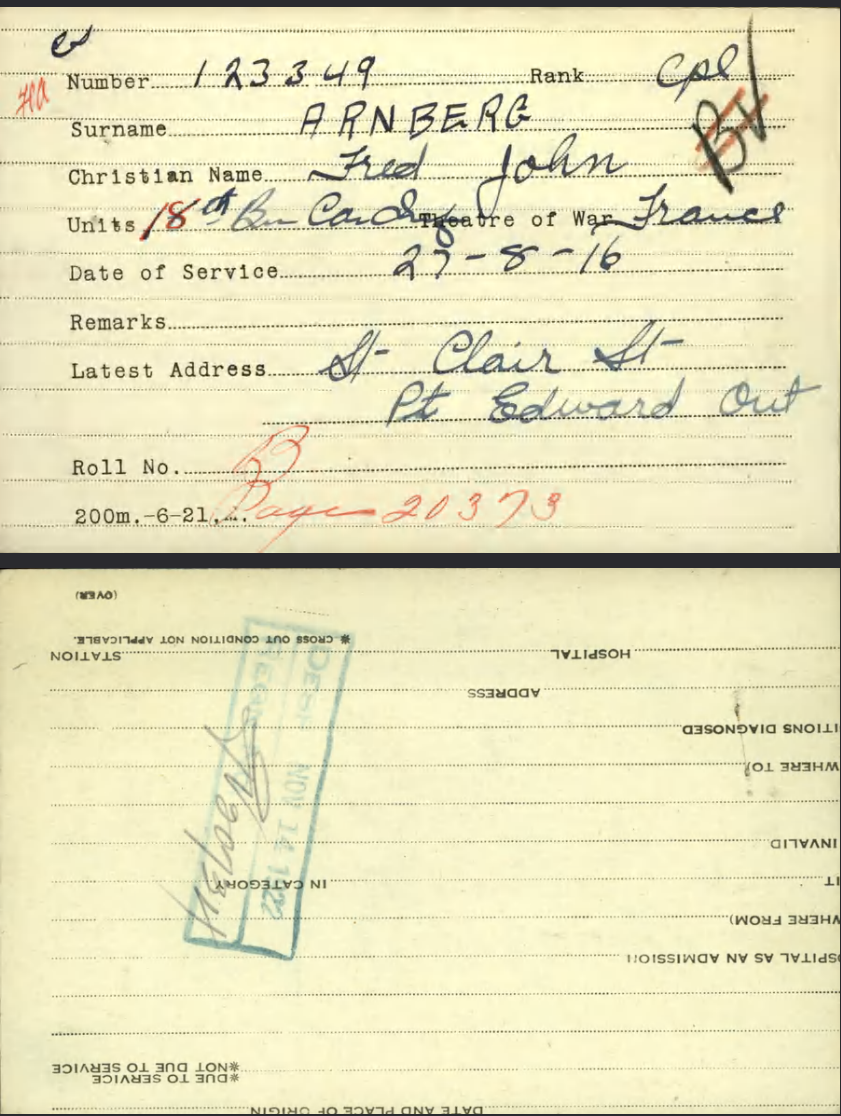 Number 123349 Rank Cpl
Surname ARNBERG
Christian Name Fred John
BV
Units 18th Bn Theatre of War France
Date of Service 27-8-16
Remarks
Latest Address St Clair St
Pt Edward Ont
Roll No. B
200m.-6-21. Page 20373
(OVER)
* CROSS OUT CONDITION NOT APPLICABLE.
HOSPITAL STATION
ADDRESS
ITIONS DIAGNOSED
WHERE TO)
INVALID
IT IN CATEGORY
WHERE FROM)
SPITAL AS AN ADMISSION
*NOT DUE TO SERVICE
*DUE TO SERVICE
DATE AND PLACE OF ORIGIN
DESP NOV 14 1922